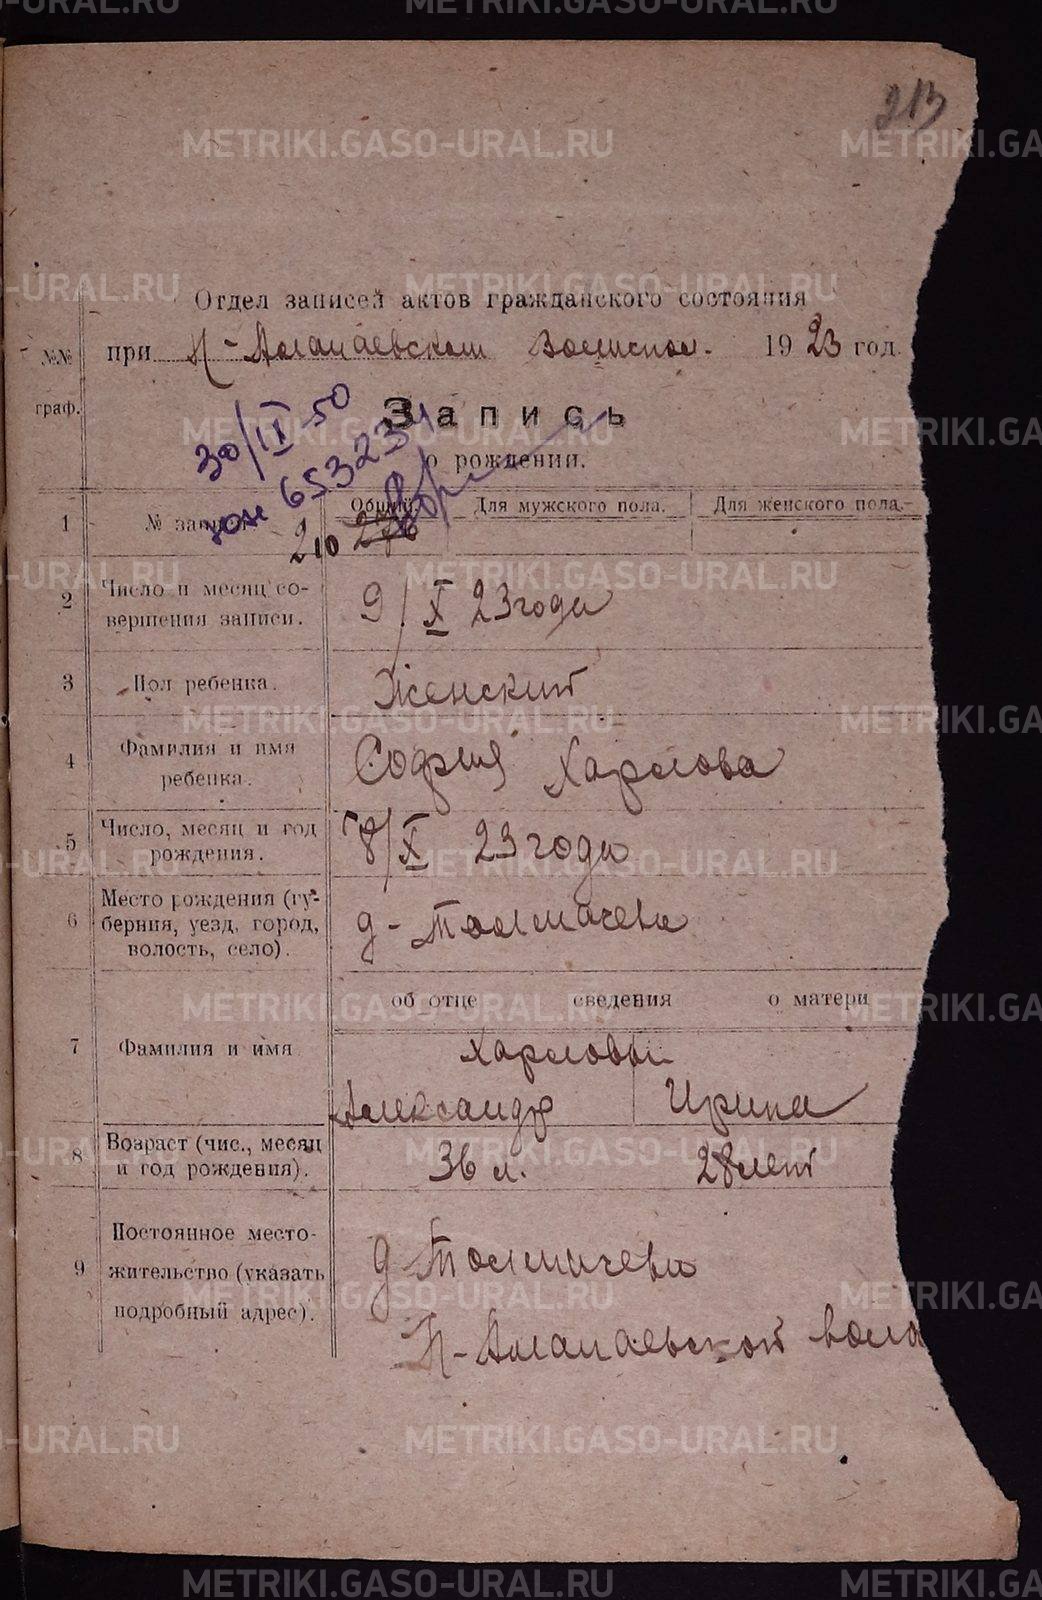 213
Отдел записей актов гражданского состояния
№№ граф.
при Н-Алапаевском Волиспол. 1923 год.
30/IX-50
Запись
о рождении.
653234
1 № записи Общий. Для мужского пола. Для женского пола.
210 276
2 Число и месяц совершения записи. 9/X 23 года
3 Пол ребенка. Женский
4 Фамилия и имя ребенка. София Харлова
5 Число, месяц и год рождения. 8/X 23 года
6 Место рождения (губерния, уезд, город, волость, село). д-Толмачева
об отце сведения о матери
7 Фамилия и имя Харловы
Александр Ирина
8 Возраст (чис., месяц и год рождения). 36 л. 28 лет
9 Постоянное местожительство (указать подробный адрес). д Толмачева
Н-Алапаевской воло
METRIKI.GASO-URAL.RU